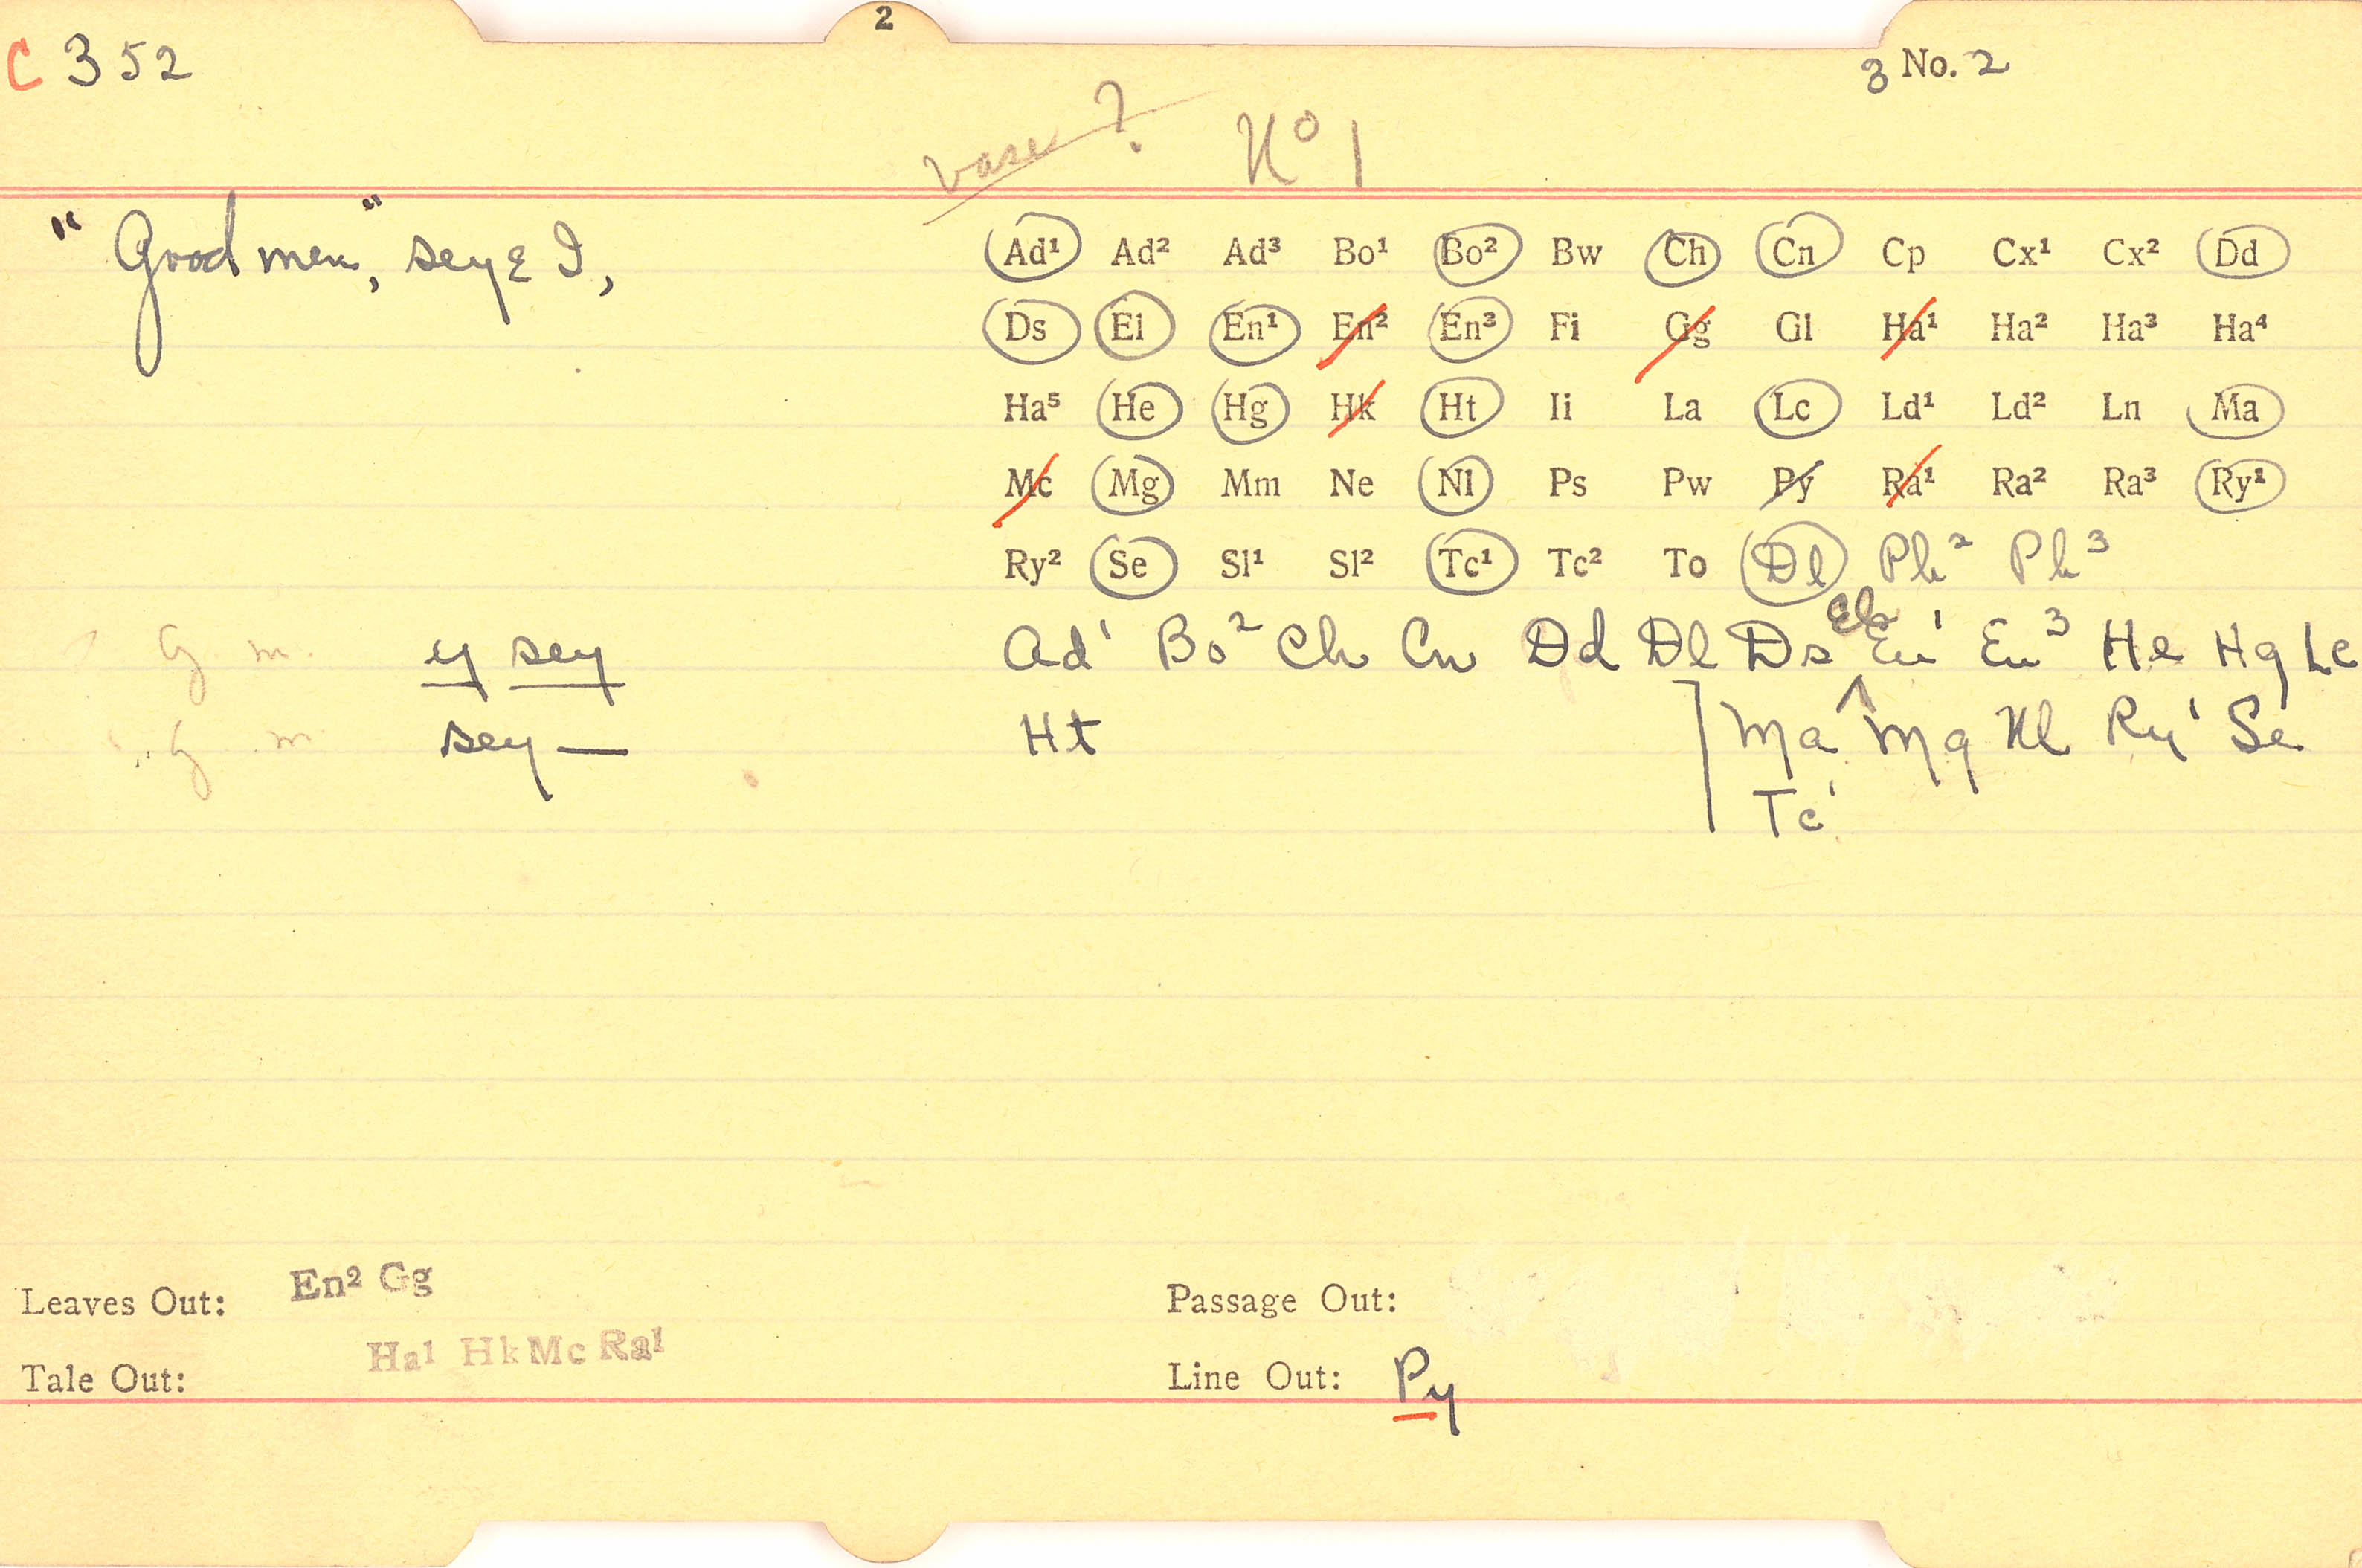 2
C 352
3 No. 2
vars ?
No 1
"Good men", seye I,
Ad¹ Ad² Ad³ Bo¹ Bo² Bw Ch Cn Cp Cx¹ Cx² Dd
Ds El En¹ En² En³ Fi Gg Gl Ha¹ Ha² Ha³ Ha⁴
Ha⁵ He Hg Hk Ht Ii La Lc Ld¹ Ld² Ln Ma
Mc Mg Mm Ne Nl Ps Pw Py Ra¹ Ra² Ra³ Ry¹
Ry² Se Sl¹ Sl² Tc¹ Tc² To Dl Ph² Ph³
G m. y sey Ad¹ Bo² Ch Cn Dd Dl Ds El En¹ En³ He Hg Lc
G m sey — Ht ] Ma Mg Nl Ry¹ Se
Tc¹
Leaves Out: En² Gg
Passage Out:
Ha¹ Hk Mc Ra¹
Tale Out:
Line Out: Py